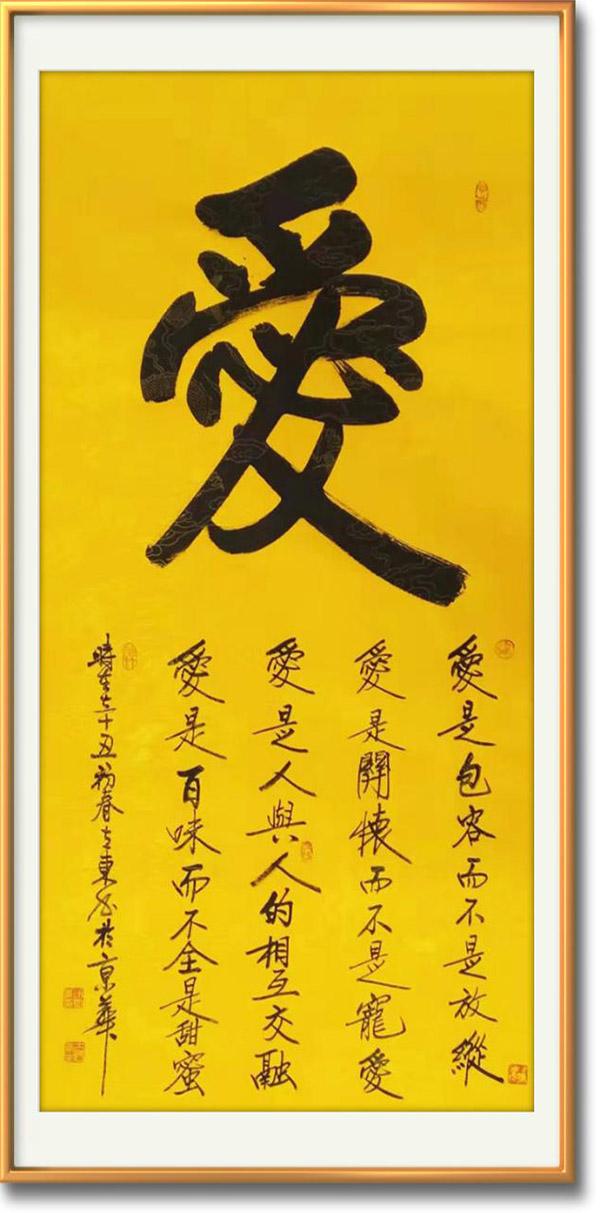 愛
愛是包容而不是放縱
愛是關懷而不是寵愛
愛是人與人的相互交融
愛是百味而不全是甜蜜
時在辛丑初春東書於京華